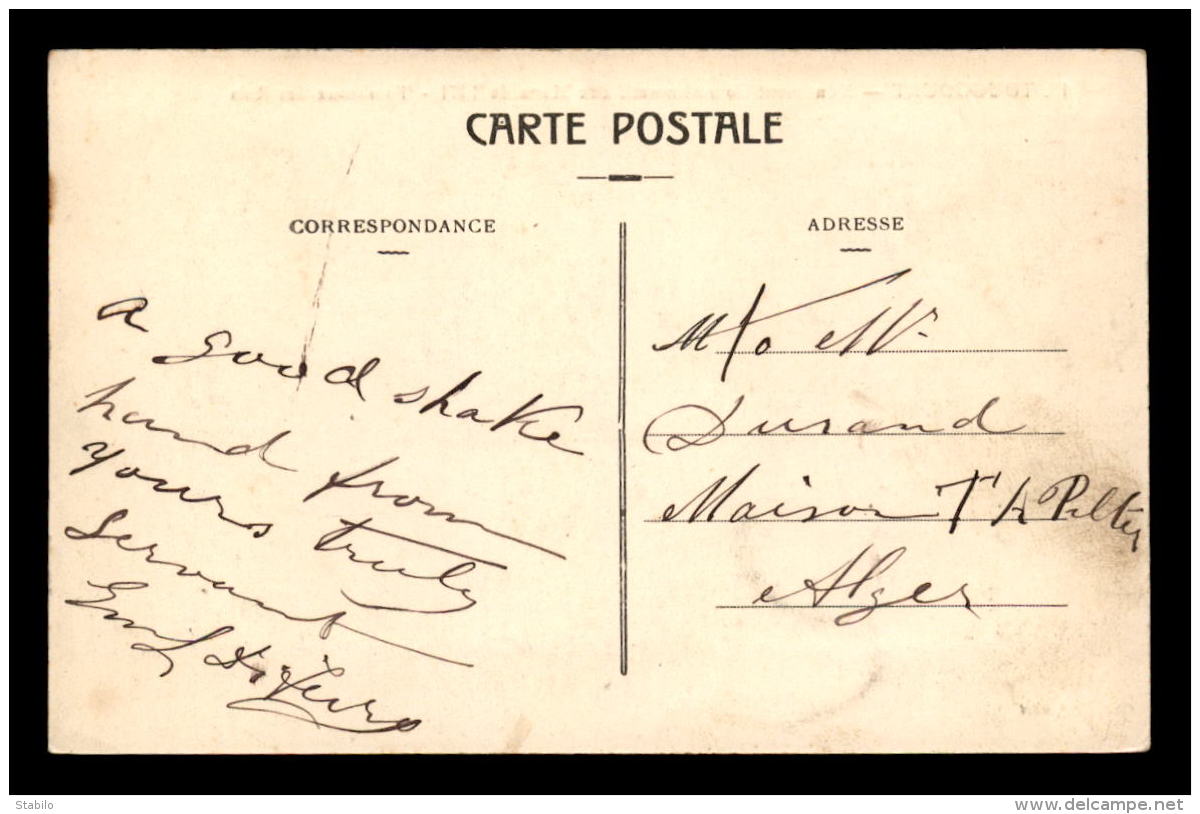 CARTE POSTALE
CORRESPONDANCE
a
good shake
hand from
yours truly
servant
ADRESSE
Durand
Maison
Alger
Stabilo
www.delcampe.net